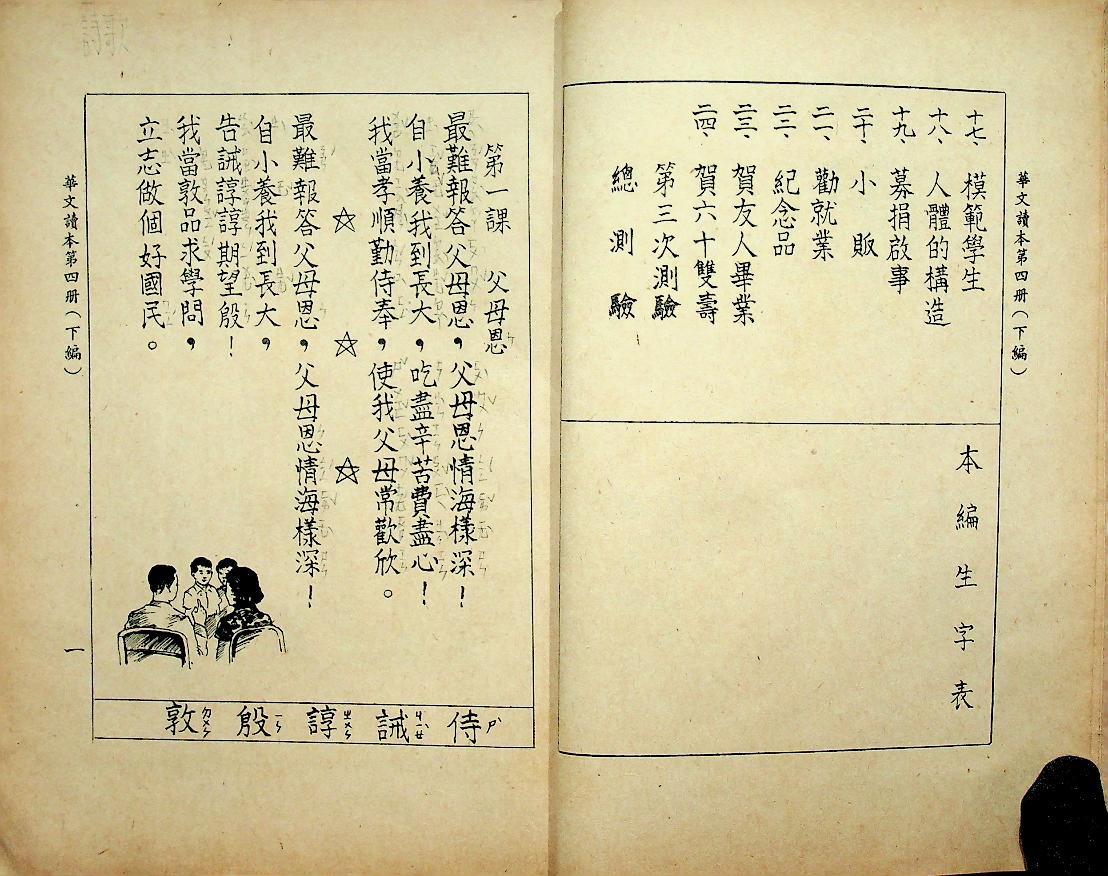 華文讀本第四册（下編）
十七、模範學生
十八、人體的構造
十九、募捐啟事
二十、小販
二一、勸就業
二二、紀念品
二三、賀友人畢業
二四、賀六十雙壽
第三次測驗
總測驗
本編生字表
第一課　父母恩
最難報答父母恩，父母恩情海樣深！
自小養我到長大，吃盡辛苦費盡心！
我當孝順勤侍奉，使我父母常歡欣。
☆☆☆
最難報答父母恩，父母恩情海樣深！
自小養我到長大，
告誡諄諄期望殷！
我當敦品求學問，
立志做個好國民。
侍ㄕˋ
誡ㄐㄧㄝˋ
諄ㄓㄨㄣ
殷ㄧㄣ
敦ㄉㄨㄣ
華文讀本第四册（下編）
一